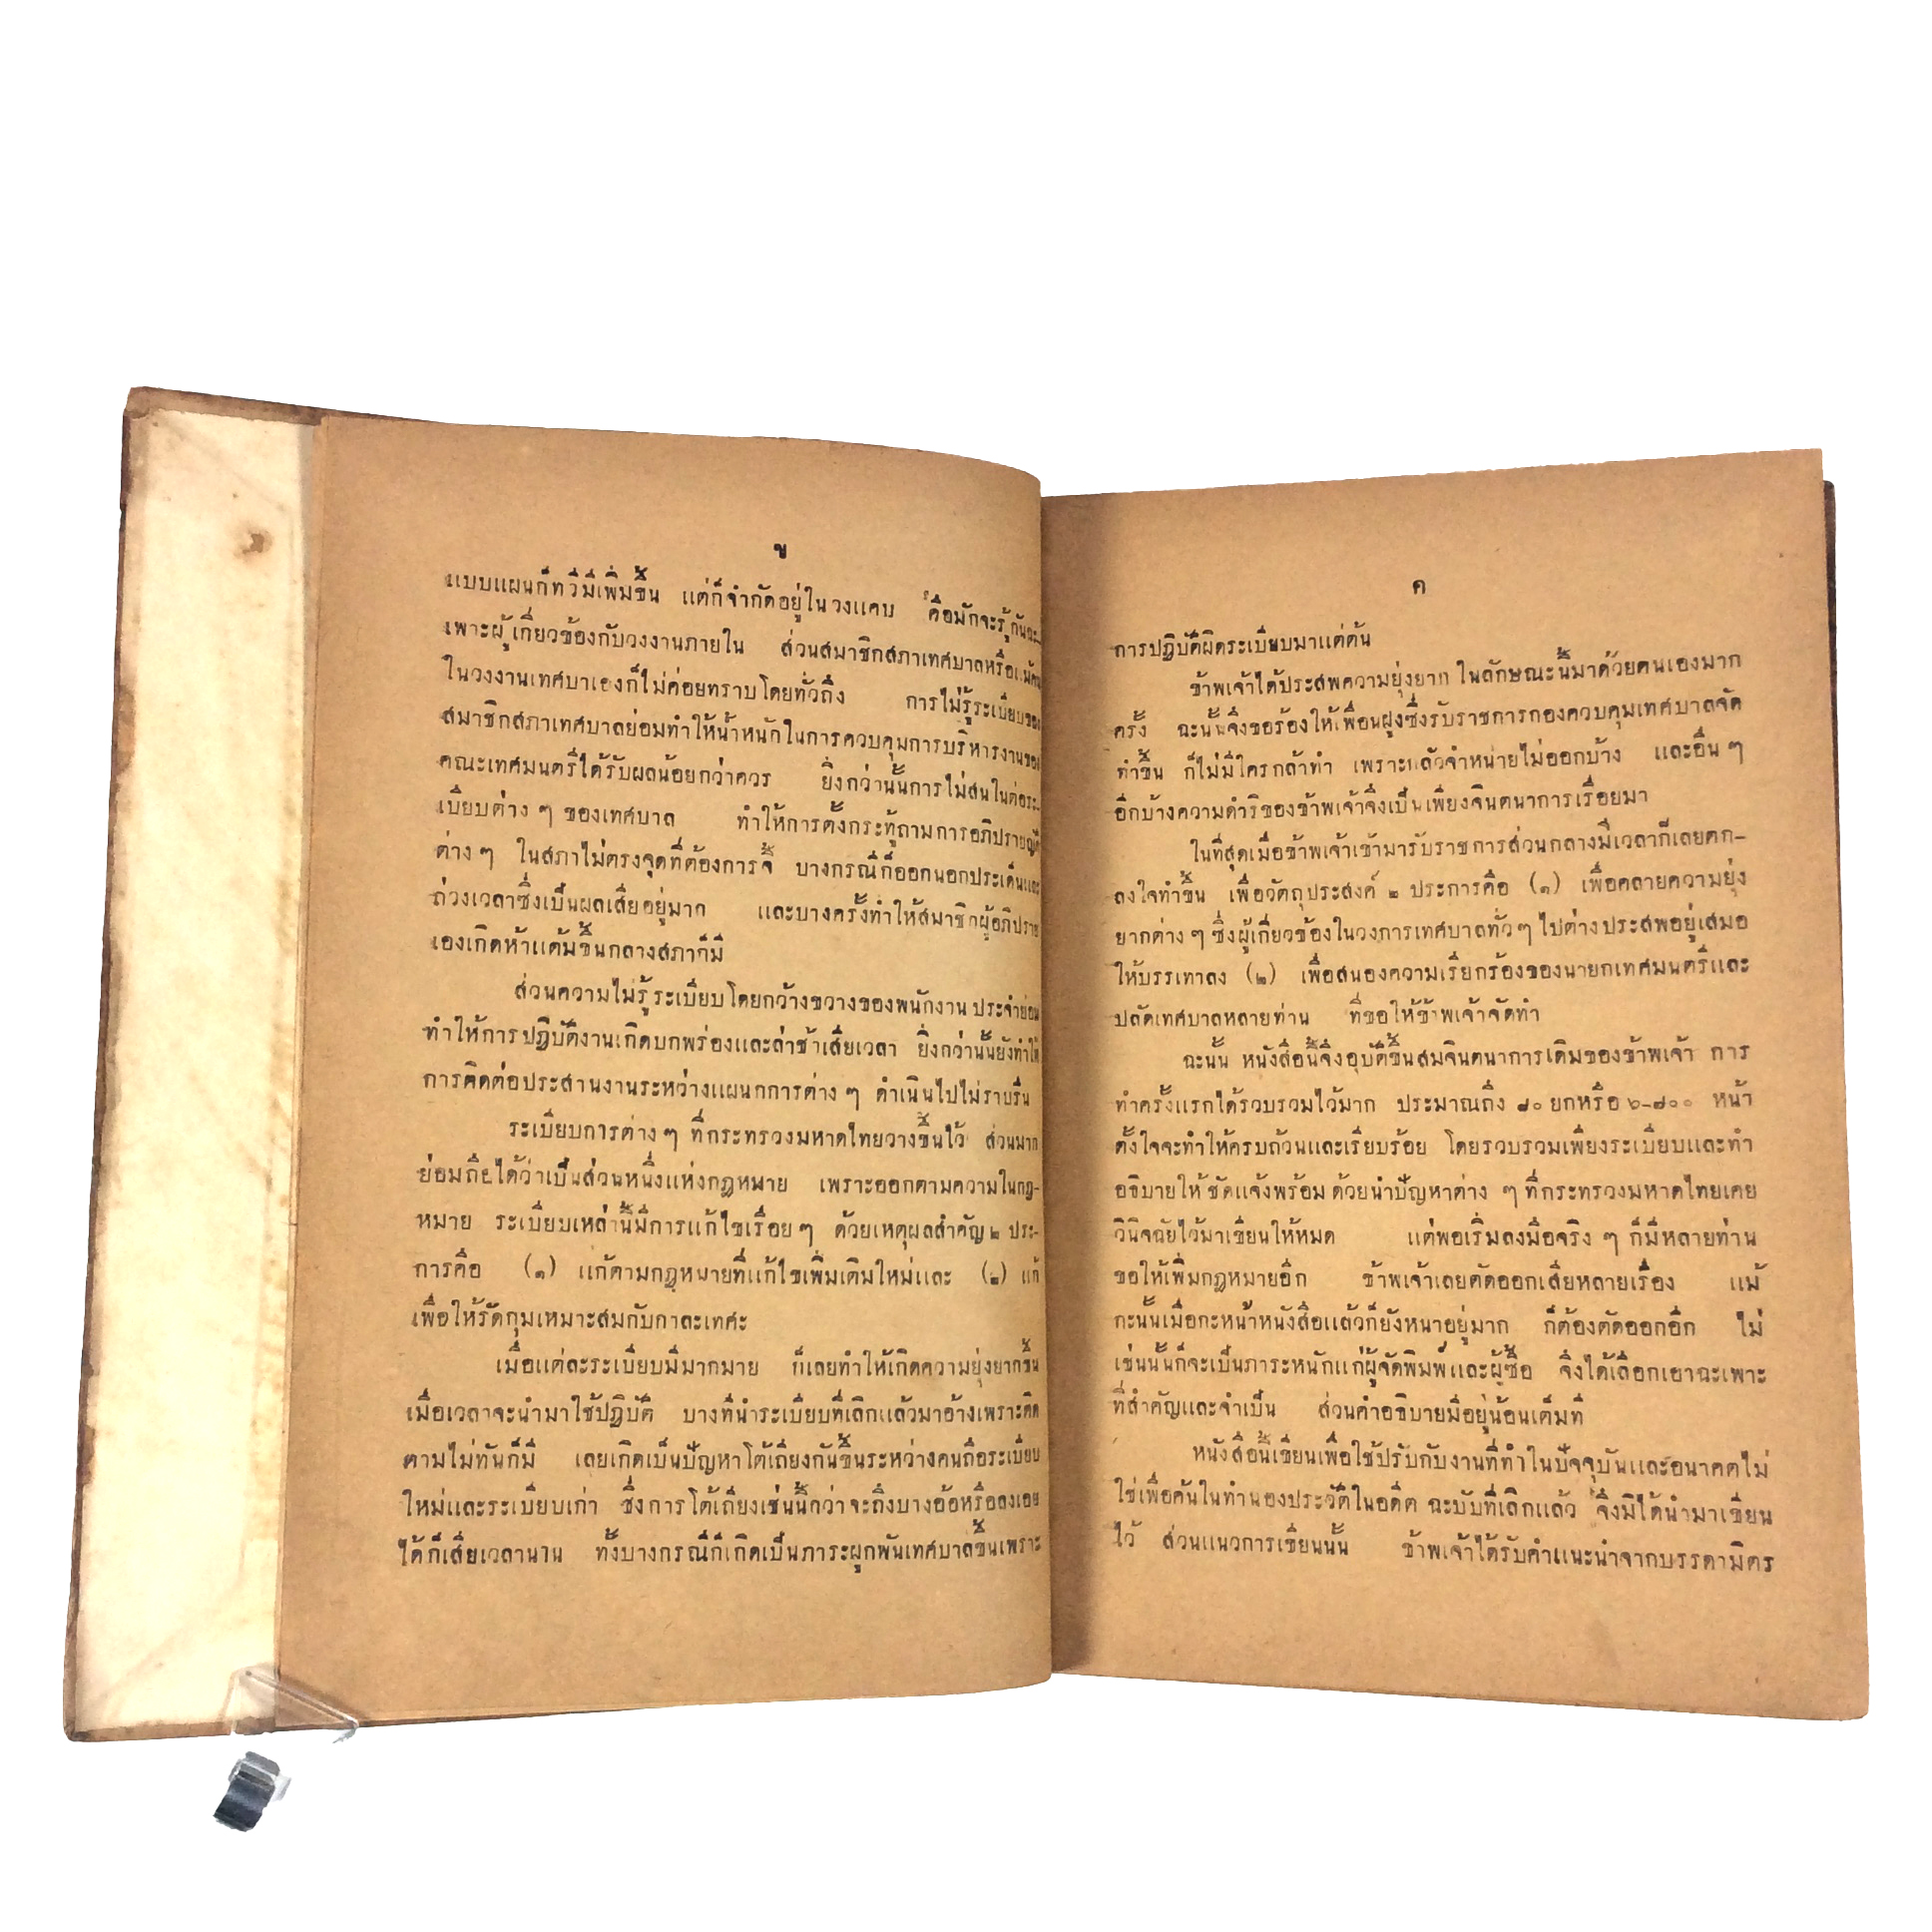 ข
แบบแผนก็ทวีมีเพิ่มขึ้น แต่ก็จำกัดอยู่ในวงแคบ คือมักจะรู้กันฉะ-
เพาะผู้เกี่ยวข้องกับวงงานภายใน ส่วนสมาชิกสภาเทศบาลหรือแม้คน
ในวงงานเทศบาลเองก็ไม่ค่อยทราบโดยทั่วถึง การไม่รู้ระเบียบของ
สมาชิกสภาเทศบาลย่อมทำให้น้ำหนักในการควบคุมการบริหารงานของ
คณะเทศมนตรีได้รับผลน้อยกว่าควร ยิ่งกว่านั้นการไม่สนในต่อระ-
เบียบต่าง ๆ ของเทศบาล ทำให้การตั้งกระทู้ถามการอภิปรายญัติ
ต่าง ๆ ในสภาไม่ตรงจุดที่ต้องการจี้ บางกรณีก็ออกนอกประเด็นและ
ถ่วงเวลาซึ่งเป็นผลเสียอยู่มาก และบางครั้งทำให้สมาชิกผู้อภิปราย
เองเกิดห้าแต้มขึ้นกลางสภาก็มี
ส่วนความไม่รู้ระเบียบโดยกว้างขวางของพนักงานประจำย่อม
ทำให้การปฏิบัติงานเกิดบกพร่องและล่าช้าเสียเวลา ยิ่งกว่านั้นยังทำให้
การติดต่อประสานงานระหว่างแผนกการต่าง ๆ ดำเนินไปไม่ราบรื่น
ระเบียบการต่าง ๆ ที่กระทรวงมหาดไทยวางขึ้นไว้ ส่วนมาก
ย่อมถือได้ว่าเป็นส่วนหนึ่งแห่งกฎหมาย เพราะออกตามความในกฎ-
หมาย ระเบียบเหล่านี้มีการแก้ไขเรื่อย ๆ ด้วยเหตุผลสำคัญ ๒ ประ-
การคือ (๑) แก้ตามกฎหมายที่แก้ไขเพิ่มเติมใหม่และ (๒) แก้
เพื่อให้รัดกุมเหมาะสมกับกาละเทศะ
เมื่อแต่ละระเบียบมีมากมาย ก็เลยทำให้เกิดความยุ่งยากขึ้น
เมื่อเวลาจะนำมาใช้ปฏิบัติ บางทีนำระเบียบที่เลิกแล้วมาอ้างเพราะติด
ตามไม่ทันก็มี เลยเกิดเป็นปัญหาโต้เถียงกันขึ้นระหว่างคนถือระเบียบ
ใหม่และระเบียบเก่า ซึ่งการโต้เถียงเช่นนี้กว่าจะถึงบางอ้อหรือลงเอย
ได้ก็เสียเวลานาน ทั้งบางกรณีก็เกิดเป็นภาระผูกพันเทศบาลขึ้นเพราะ
ค
การปฏิบัติผิดระเบียบมาแต่ต้น
ข้าพเจ้าได้ประสพความยุ่งยาก ในลักษณะนี้มาด้วยตนเองมาก
ครั้ง ฉะนั้นจึงขอร้องให้เพื่อนฝูงซึ่งรับราชการกองควบคุมเทศบาลจัด
ทำขึ้น ก็ไม่มีใครกล้าทำ เพราะแล้วจำหน่ายไม่ออกบ้าง และอื่น ๆ
อีกบ้างความดำริของข้าพเจ้าจึงเป็นเพียงจินตนาการเรื่อยมา
ในที่สุดเมื่อข้าพเจ้าเข้ามารับราชการส่วนกลางมีเวลาก็เลยตก-
ลงใจทำขึ้น เพื่อวัตถุประสงค์ ๒ ประการคือ (๑) เพื่อคลายความยุ่ง
ยากต่าง ๆ ซึ่งผู้เกี่ยวข้องในวงการเทศบาลทั่ว ๆ ไปต่างประสพอยู่เสมอ
ให้บรรเทาลง (๒) เพื่อสนองความเรียกร้องของนายกเทศมนตรีและ
ปลัดเทศบาลหลายท่าน ที่ขอให้ข้าพเจ้าจัดทำ
ฉะนั้น หนังสือนี้จึงอุบัติขึ้นสมจินตนาการเดิมของข้าพเจ้า การ
ทำครั้งแรกได้รวบรวมไว้มาก ประมาณถึง ๘๐ ยกหรือ ๖-๘๐๐ หน้า
ตั้งใจจะทำให้ครบถ้วนและเรียบร้อย โดยรวบรวมเพียงระเบียบและทำ
อธิบายให้ชัดแจ้งพร้อมด้วยนำปัญหาต่าง ๆ ที่กระทรวงมหาดไทยเคย
วินิจฉัยไว้มาเขียนให้หมด แต่พอเริ่มลงมือจริง ๆ ก็มีหลายท่าน
ขอให้เพิ่มกฎหมายอีก ข้าพเจ้าเลยตัดออกเสียหลายเรื่อง แม้
กะนั้นเมื่อกะหน้าหนังสือแล้วก็ยังหนาอยู่มาก ก็ต้องตัดออกอีก ไม่
เช่นนั้นก็จะเป็นภาระหนักแก่ผู้จัดพิมพ์และผู้ซื้อ จึงได้เลือกเอาฉะเพาะ
ที่สำคัญและจำเป็น ส่วนคำอธิบายมีอยู่น้อนเต็มที
หนังสือนี้เขียนเพื่อใช้ปรับกับงานที่ทำในปัจจุบันและอนาคตไม่
ใช่เพื่อค้นในทำนองประวัติในอดีต ฉะบับที่เลิกแล้ว จึงมิได้นำมาเขียน
ไว้ ส่วนแนวการเขียนนั้น ข้าพเจ้าได้รับคำแนะนำจากบรรดามิตร